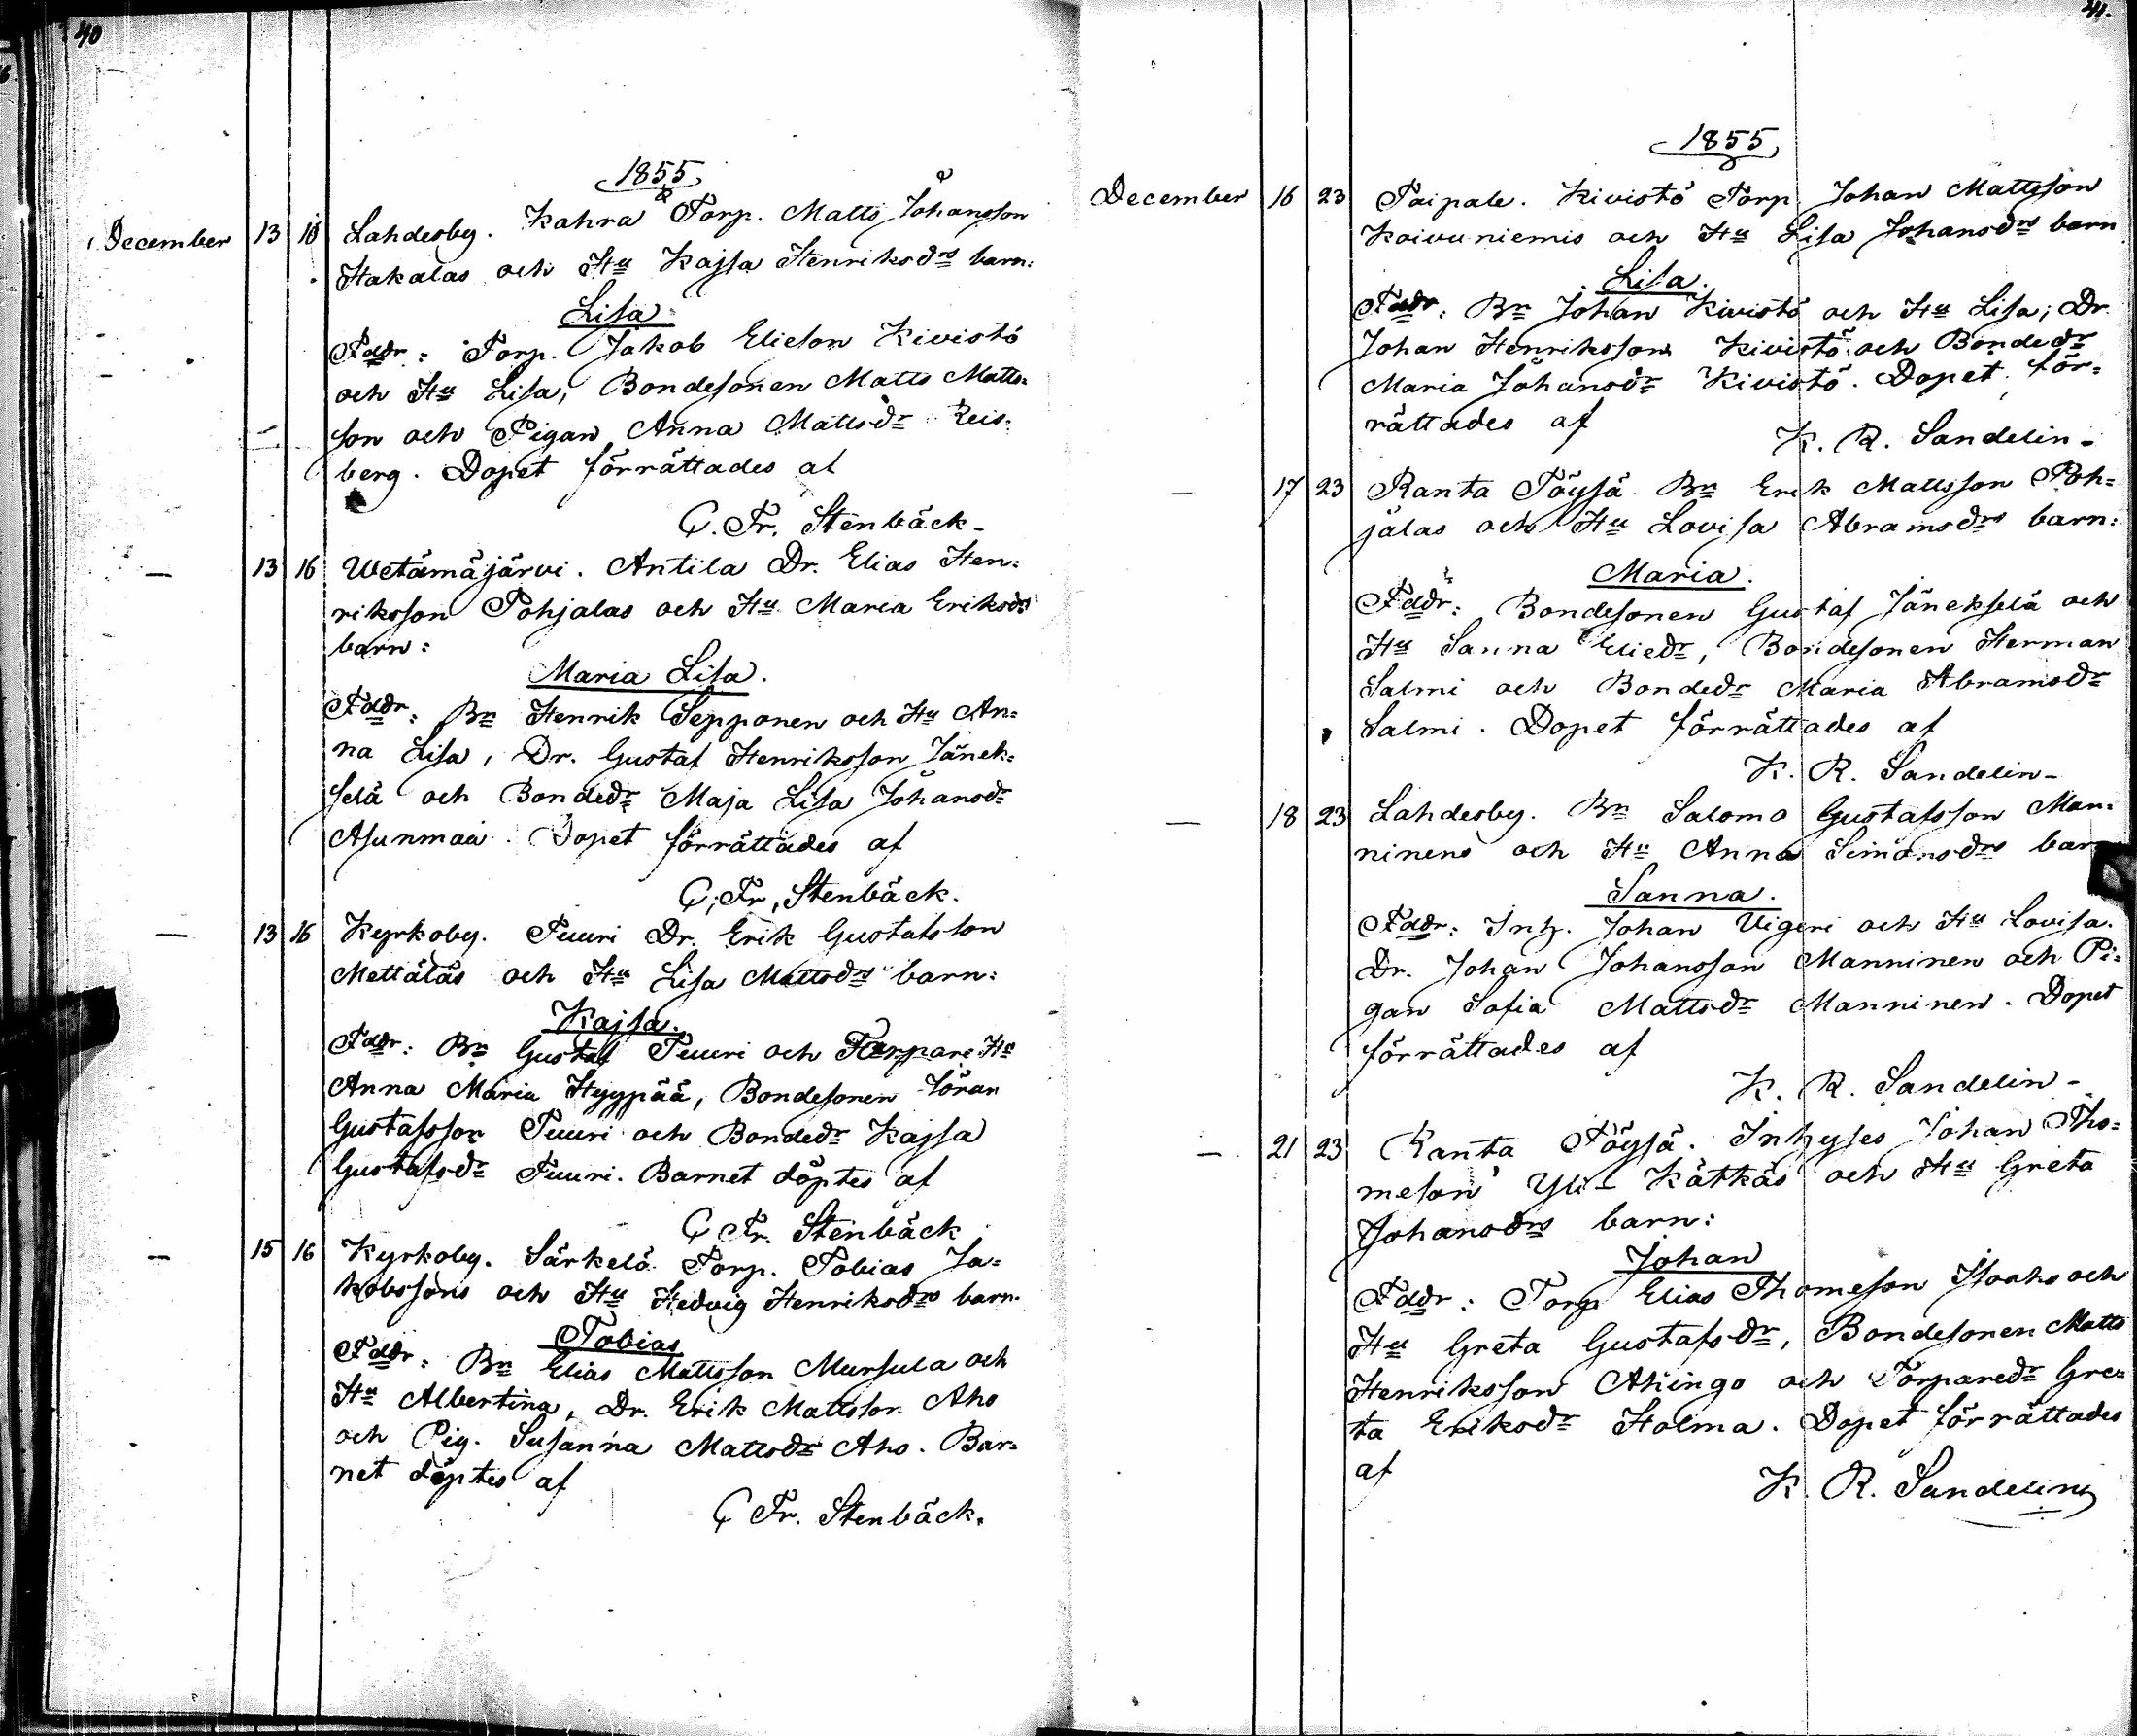 40
1855
December 13 16 Lahdesby. Kahra Torp. Matts Johansson
Hakalas och Hu Kajsa Henriksdrs barn:
Lisa
Faddr: Torp. Jakob Elieson Kivistö
och Hu Lisa, Bondesonen Matts Matts=
son och Pigan Anna Mattsdr Reis=
berg. Dopet förrättades af
C. Fr. Stenbäck-
— 13 16 Wetämäjärvi. Antila Dr. Elias Hen=
riksson Pohjalas och Hu Maria Eriksdrs
barn:
Maria Lisa.
Faddr: Bn Henrik Sepponen och Hu An=
na Lisa, Dr. Gustaf Henriksson Jänek=
selä och Bondedr Maja Lisa Johansdr
Asunmaa. Dopet förrättades af
C. Fr. Stenbäck.
— 13 16 Kyrkoby. Tuuri Dr. Erik Gustafsson
Mettäläs och Hu Lisa Mattsdrs barn:
Kajsa.
Faddr: Bn Gustaf Tuuri och Torpare Hu
Anna Maria Hyypää, Bondesonen Jöran
Gustafsson Tuuri och Bondedr Kajsa
Gustafsdr Tuuri. Barnet döptes af
C Fr. Stenbäck
— 15 16 Kyrkoby. Särkelä Torp. Tobias Ja=
kobssons och Hu Hedvig Henriksdrs barn.
Tobias
Faddr: Bn Elias Mattsson Mursula och
Hu Albertina, Dr. Erik Mattsson Aho
och Pig. Susanna Mattsdr Aho. Bar=
net döptes af
C Fr. Stenbäck.
41.
1855
December 16 23 Paipale. Kivistö Torp Johan Mattsson
Koivuniemis och Hu Lisa Johansdrs barn
Lisa.
Faddr: Bn Johan Kivistö och Hu Lisa; Dr.
Johan Henriksson Kivistö och Bondedr
Maria Johansdr Kivistö. Dopet för=
rättades af
K. R. Sandelin-
— 17 23 Ranta Töysä. Bn Erik Mattsson Poh=
jalas och Hu Lovisa Abramsdrs barn:
Maria.
Faddr: Bondesonen Gustaf Jänekselä och
Hu Sanna Eliedr, Bondesonen Herman
Salmi och Bondedr Maria Abramsdr
Salmi. Dopet förrättades af
K. R. Sandelin-
— 18 23 Lahdesby. Bn Salomo Gustafsson Man=
ninens och Hu Anna Simonsdrs barn
Sanna.
Faddr: Inh. Johan Vigeri och Hu Lovisa.
Dr. Johan Johansson Manninen och Pi=
gan Sofia Mattsdr Manninen. Dopet
förrättades af
K. R. Sandelin-
— 21 23 Ranta Töysä. Inhyses Johan Tho=
meson Yli-Kätkäs och Hu Greta
Johansdrs barn:
Johan
Faddr: Torp Elias Thomeson Isoaho och
Hu Greta Gustafsdr, Bondesonen Matts
Henriksson Ahingo och Torparedr Gre=
ta Eriksdr Holma. Dopet förrättades
af
K. R. Sandelin